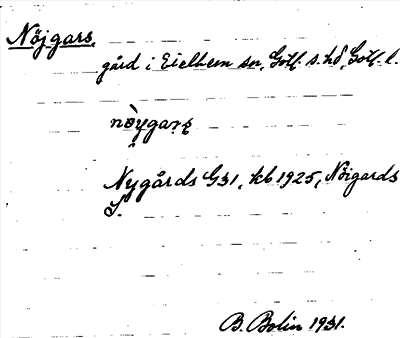 Nöjgars.
gård i Eielhem sn, Gotl. s. hd, Gotl. l.
nöygarş
Nygårds G31, kb 1925, Nöigards
S.
B. Bolin 1931.